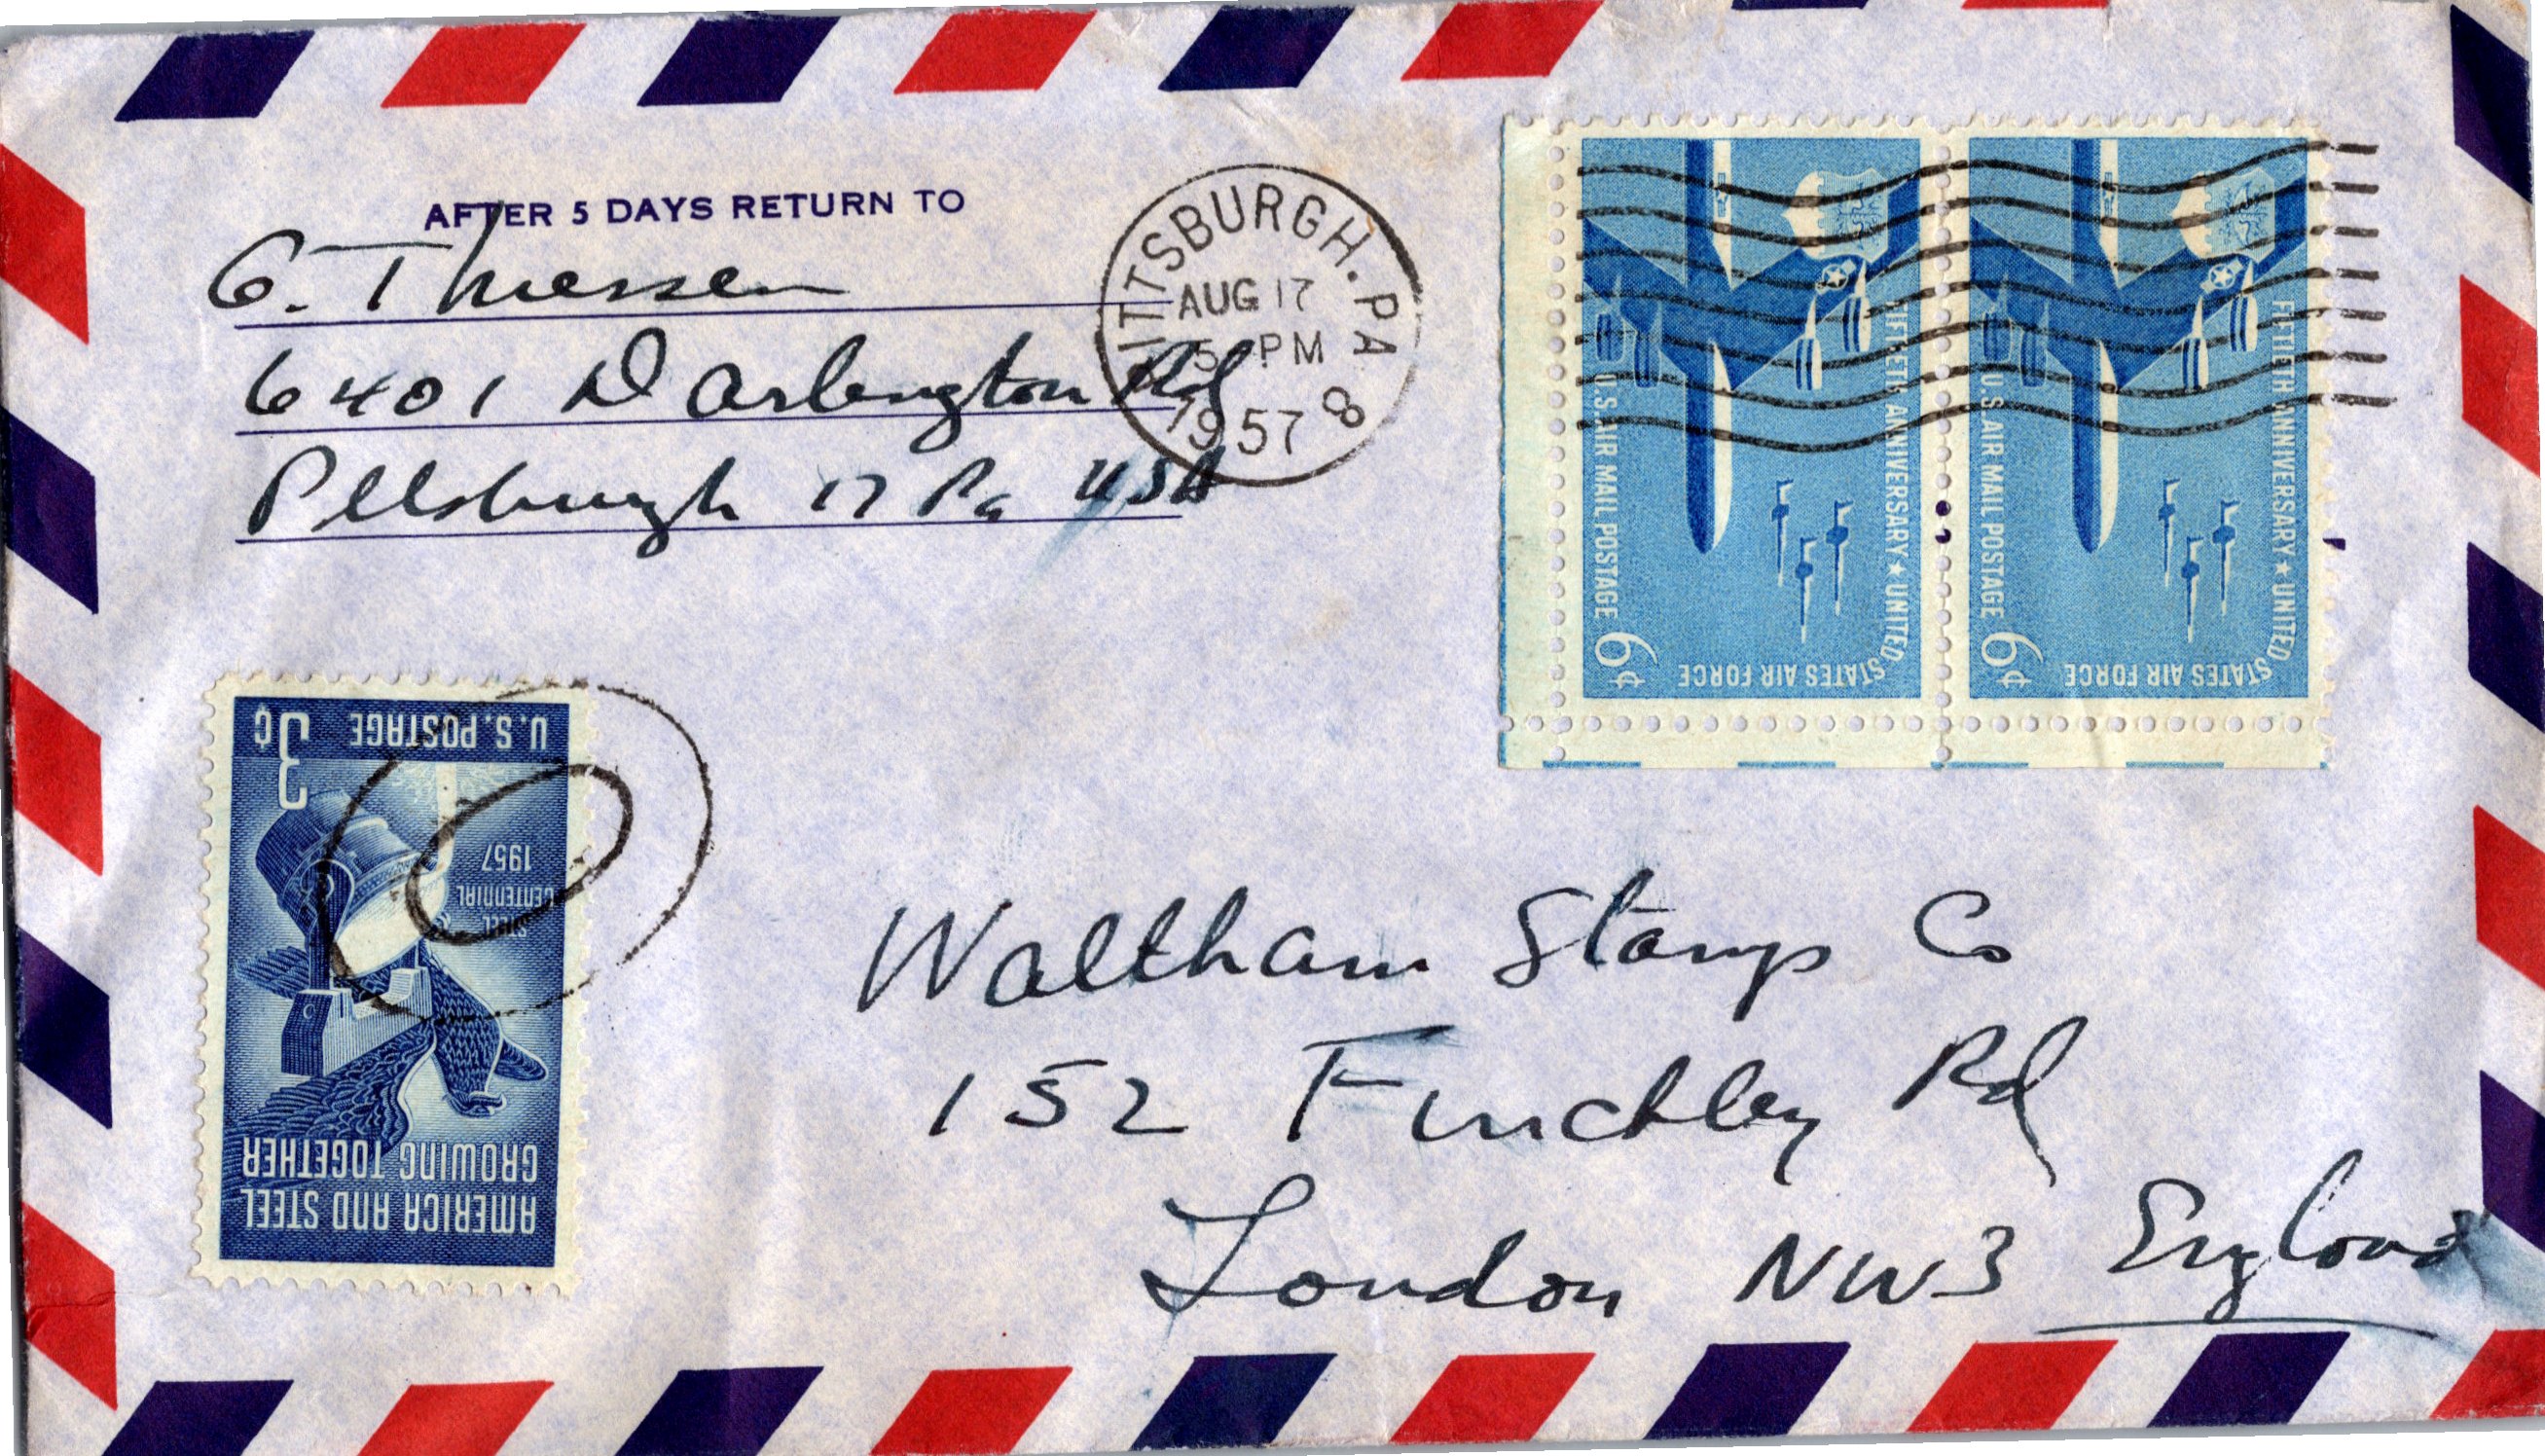 AFTER 5 DAYS RETURN TO
G. Thiessen
6401 Darlington Rd
Pittsburgh 17 Pa USA
PITTSBURGH. PA
AUG 17
5 PM
1957
8
U.S. AIR MAIL POSTAGE 6¢
FIFTIETH ANNIVERSARY ★ UNITED STATES AIR FORCE
U.S. AIR MAIL POSTAGE 6¢
FIFTIETH ANNIVERSARY ★ UNITED STATES AIR FORCE
AMERICA AND STEEL
GROWING TOGETHER
STEEL
CENTENNIAL
1957
U.S. POSTAGE 3¢
Waltham Stamp Co
152 Finchley Rd
London NW3 England